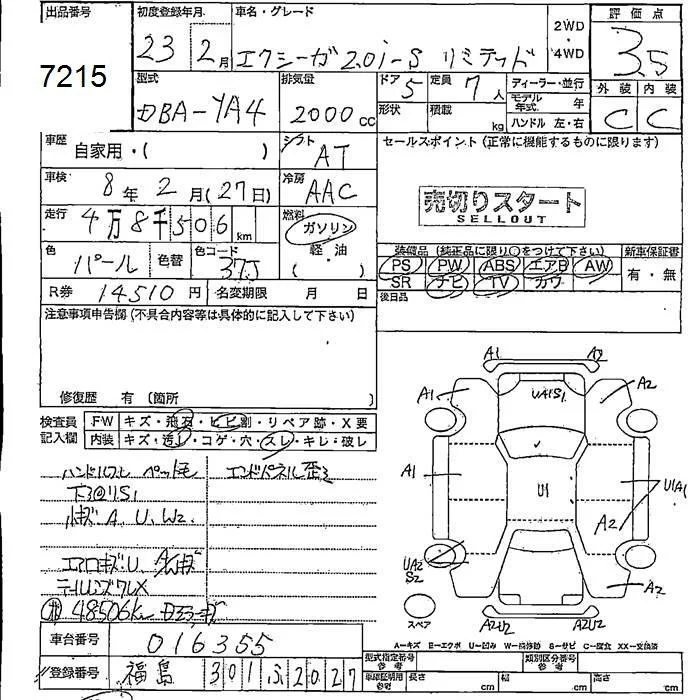 出品番号
7215
初度登録年月
23年 2月
車名・グレード
エクシーガ 2.0i-S リミテッド
2WD
・
4WD
評価点
3.5
型式
DBA-YA4
排気量
2000cc
ドア 5
定員 7人
形状
積載 kg
ディーラー・並行
モデル年式 年
ハンドル 左・右
外装 内装
C C
車歴
自家用・( )
シフト
AT
セールスポイント(正常に機能するものに限ります)
車検
8年 2月(27日)
冷房
AAC
売切りスタート
SELLOUT
走行
4万8千506km
燃料
ガソリン
軽・油
( )
色
パール
色替
色コード
37J
装備品(純正品に限り○をつけて下さい)
PS PW ABS エアB AW
SR ナビ TV カワ
新車保証書
有・無
R券 14510円
名変期限 月 日
後日品
注意事項申告欄(不具合内容等は具体的に記入して下さい)
修復歴 有〔箇所 〕
検査員記入欄
FW キズ・飛石・ヒビ割・リペア跡・X要
内装 キズ・汚れ・コゲ・穴・スレ・キレ・破レ
ハンドルスレ ペット毛
エンドパネル歪ミ
下回りS1
小キズ A、U、W2、
エアロキズU、
テールレンズワレX
48506km
A1 A2
A1 UA1S1 A2
A1 U1 U1A1
A2
UA2
S2
A2
スペア
A2U2 A2U2
A=キズ E=エクボ U=凹み W=補修跡 S=サビ C=腐食 XX=交換済
車台番号 016355
登録番号 福島 301 ふ 2027
型式指定番号
類別区分番号
車庫証明用参考
長さ cm
幅 cm
高さ cm